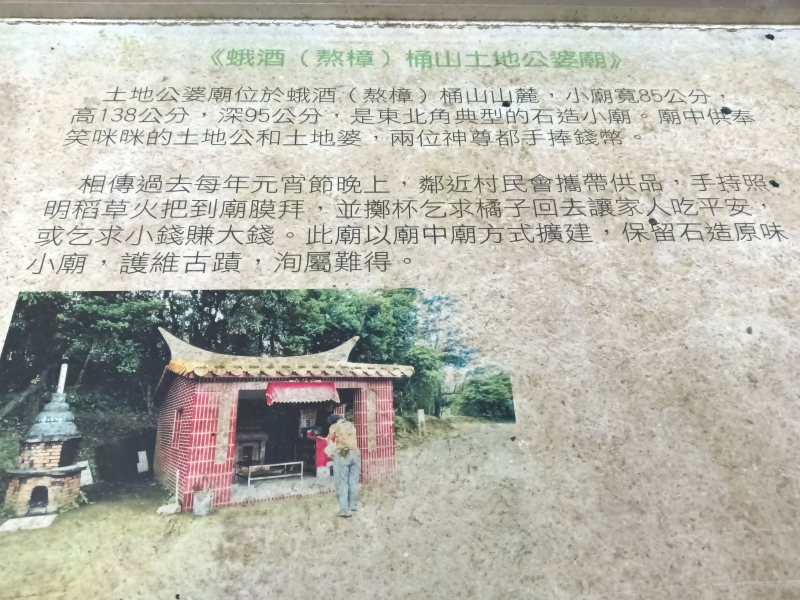 《蛾酒（熬樟）桶山土地公婆廟》
土地公婆廟位於蛾酒（熬樟）桶山山麓，小廟寬85公分，
高138公分，深95公分，是東北角典型的石造小廟。廟中供奉
笑咪咪的土地公和土地婆，兩位神尊都手捧錢幣。
相傳過去每年元宵節晚上，鄰近村民會攜帶供品，手持照
明稻草火把到廟膜拜，並擲杯乞求橘子回去讓家人吃平安，
或乞求小錢賺大錢。此廟以廟中廟方式擴建，保留石造原味
小廟，護維古蹟，洵屬難得。